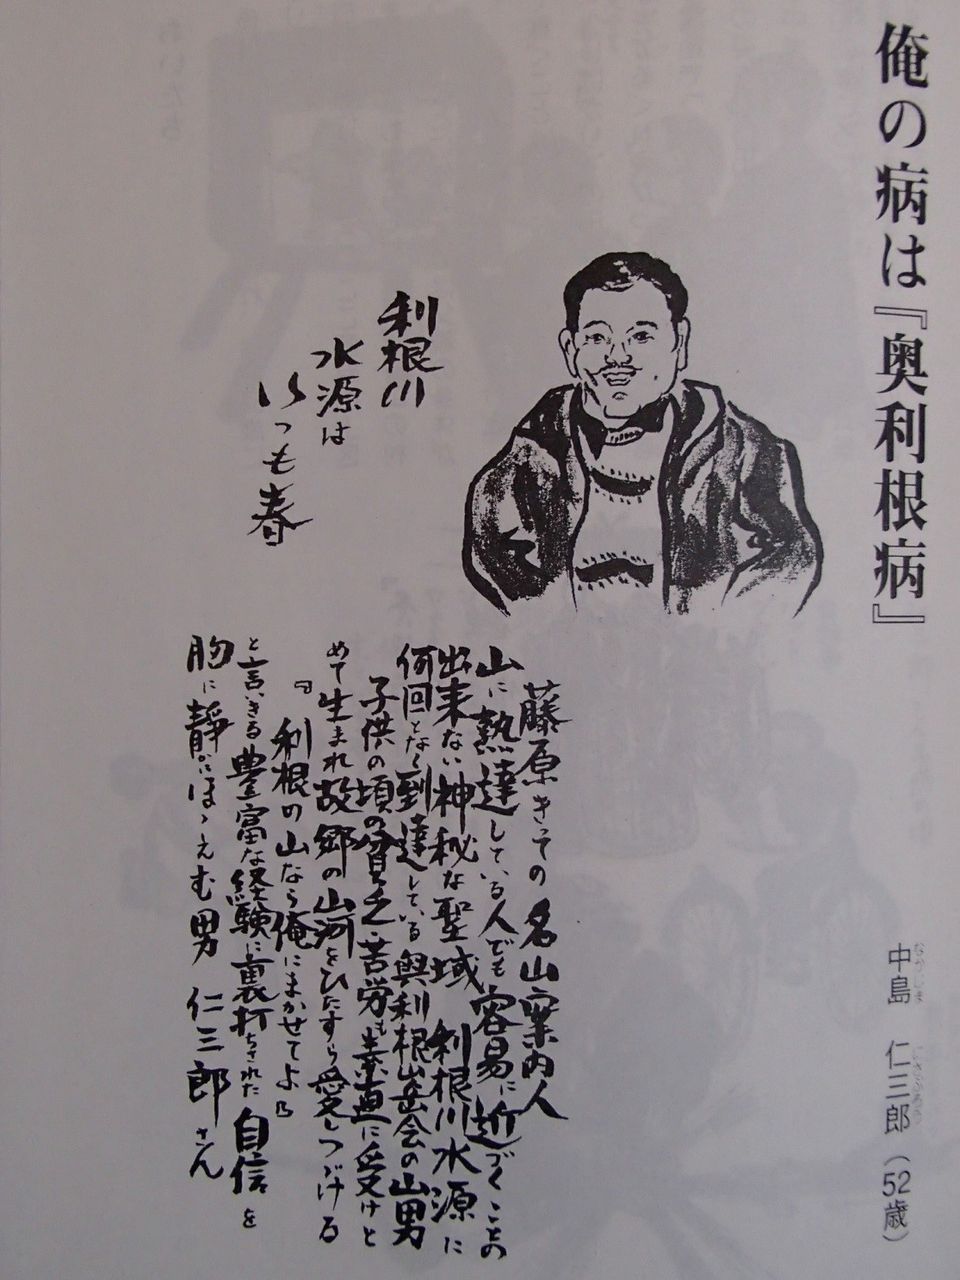 俺の病は『奥利根病』
中島 仁三郎（52歳）
なかじま にさぶろう
利根川
水源は
いつも春
藤原きっての名山案内人
山に熟達している人でも容易に近づくことの
出来ない神秘な聖域 利根川水源に
何回となく到達している奥利根山岳会の山男
子供の頃の貧乏・苦労も素直に受けと
めて生まれ故郷の山河をひたすら愛しつづける
『利根の山なら俺にまかせてよ』
と言いきる豊富な経験に裏打ちされた自信を
胸に静かにほゝえむ男 仁三郎さん